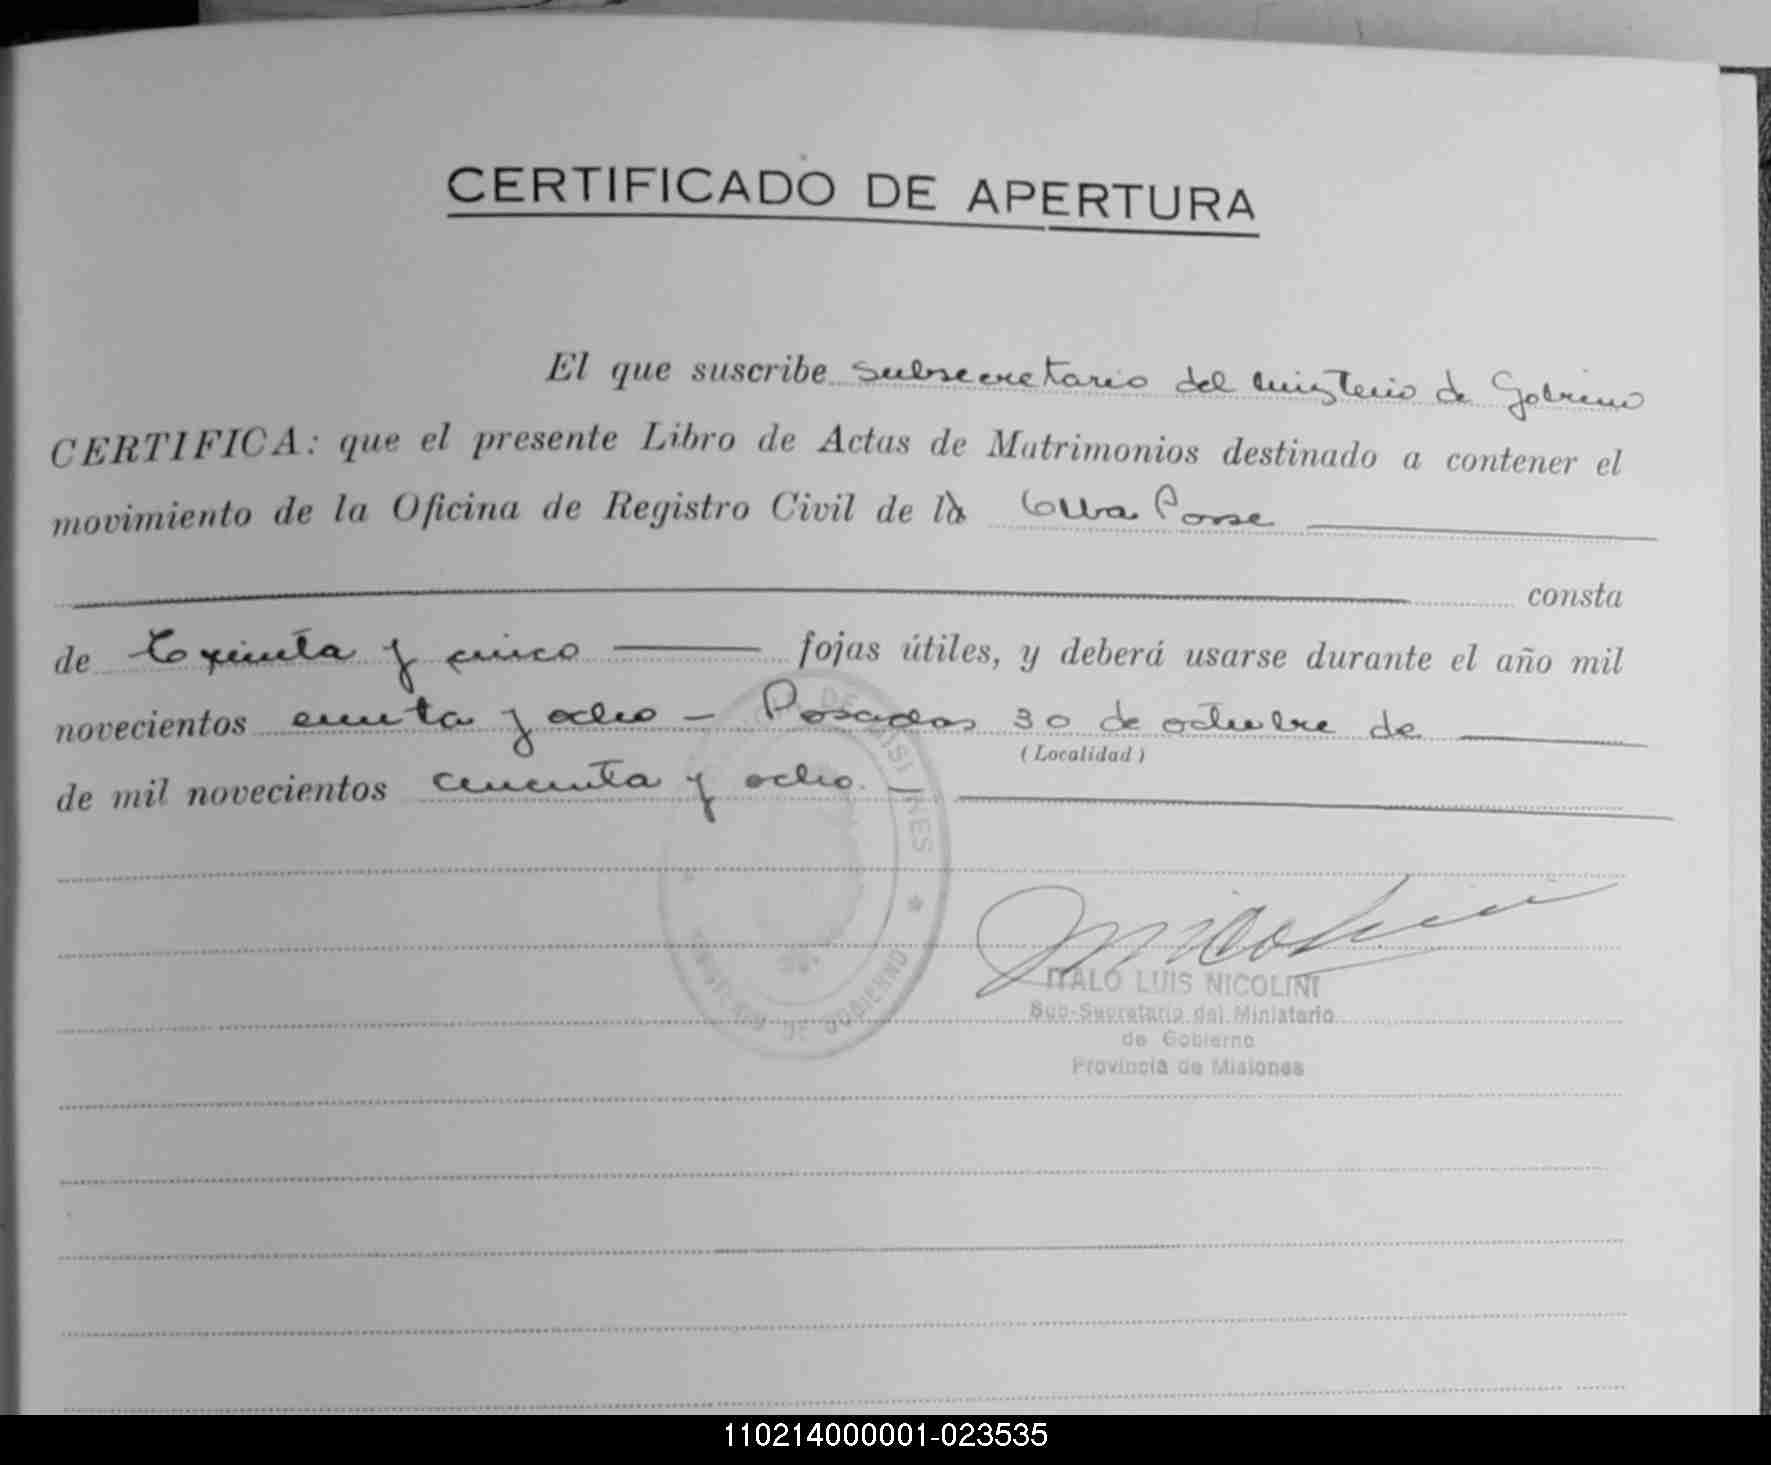 CERTIFICADO DE APERTURA
El que suscribe subsecretario del ministerio de Gobierno
CERTIFICA: que el presente Libro de Actas de Matrimonios destinado a contener el
movimiento de la Oficina de Registro Civil de la Alba Posse
consta
de treinta y cinco fojas útiles, y deberá usarse durante el año mil
novecientos y ocho - Posadas 30 de octubre de
(Localidad)
de mil novecientos cincuenta y ocho.
DE MISIONES
MINISTERIO DE GOBIERNO
Nicolini
ITALO LUIS NICOLINI
Sub-Secretario del Ministerio
de Gobierno
Provincia de Misiones
110214000001-023535